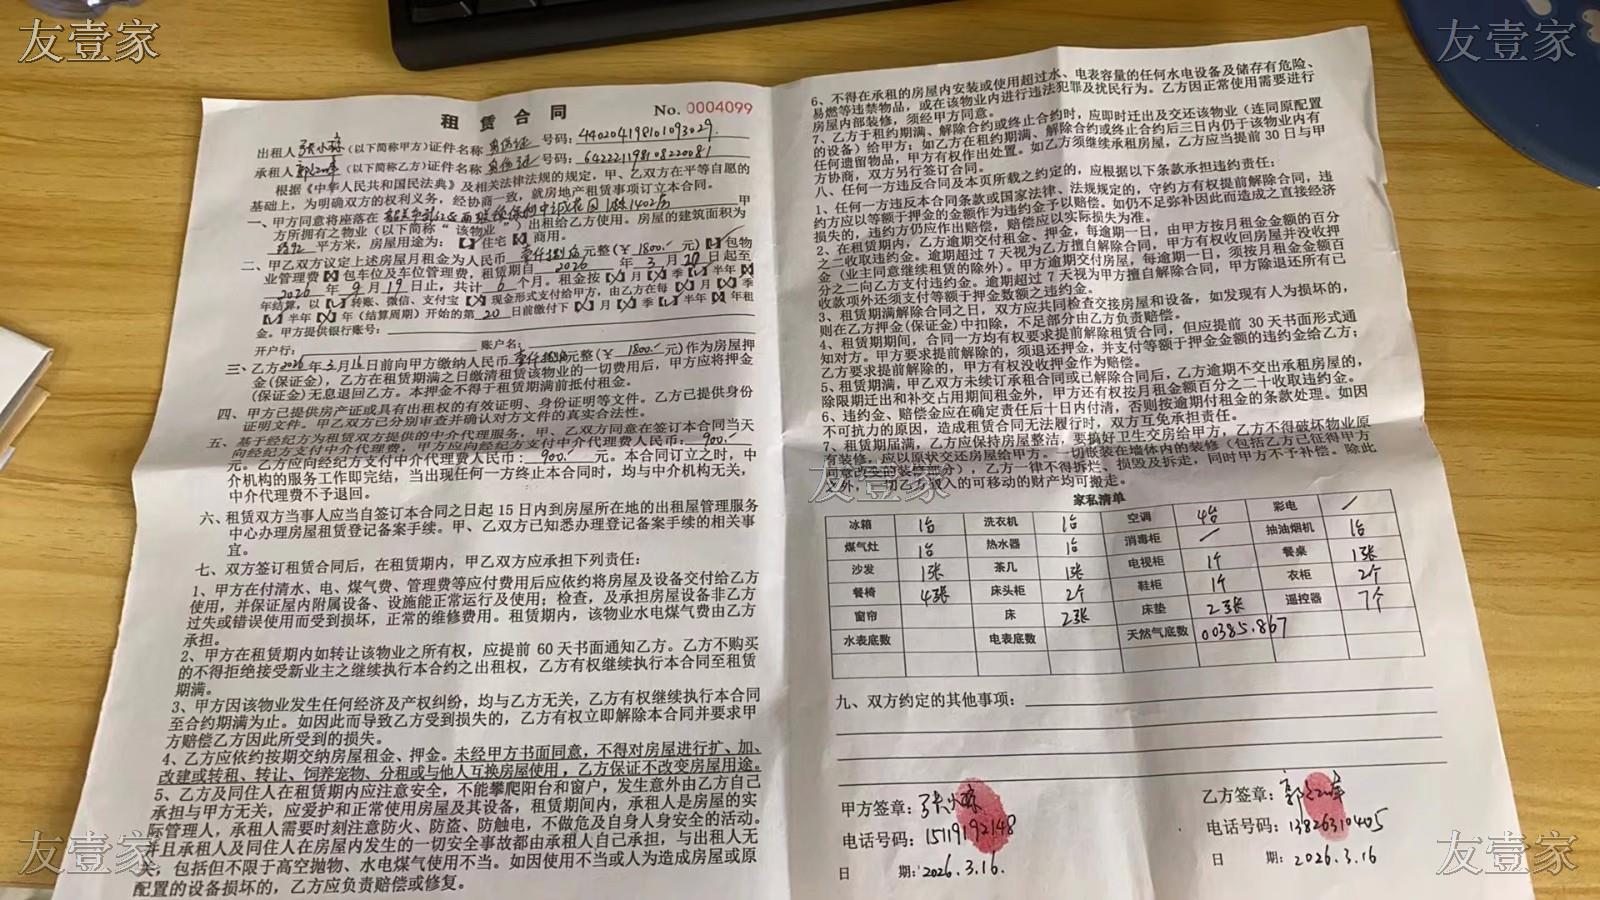 友壹家
友壹家
租 赁 合 同 No. 0004099
出租人 (以下简称甲方)证件名称 身份证 号码: 440204198101093029
承租人 (以下简称乙方)证件名称 身份证 号码: 642221198108220081
根据《中华人民共和国民法典》及相关法律法规的规定，甲、乙双方在平等自愿的
基础上，为明确双方的权利义务，经协商一致，就房地产租赁事项订立本合同。
一、甲方同意将座落在 1402房 甲
方所拥有之物业（以下简称“该物业”）出租给乙方使用。房屋的建筑面积为
平方米，房屋用途为：【 】住宅【 】商用。
二、甲乙双方议定上述房屋月租金为人民币 壹仟捌佰 元整(￥ 1800.- 元)【 】包物
业管理费【 】包车位及车位管理费，租赁期自 2026 年 3 月 20 日起至
2026 年 9 月 19 日止，共计 6 个月。租金按【 】月【 】季【 】半年【 】
年结算，以【 】转账、微信、支付宝【 】现金形式支付给甲方，由乙方在每【 】月【 】季
【 】半年【 】年（结算周期）开始的第 20 日前缴付下【 】月【 】季【 】半年【 】年租
金。甲方提供银行账号：
开户行： 账户名：
三、乙方2026年3月16日前向甲方缴纳人民币 壹仟捌佰 元整(￥ 1800.- 元)作为房屋押
金(保证金)，乙方在租赁期满之日缴清租赁该物业的一切费用后，甲方应将押金
(保证金)无息退回乙方。本押金不得于租赁期满前抵付租金。
四、甲方已提供房产证或具有出租权的有效证明、身份证明等文件。乙方已提供身份
证明文件。甲乙双方已分别审查并确认对方文件的真实合法性。
五、基于经纪方为租赁双方提供的中介代理服务，甲、乙双方同意在签订本合同当天
向经纪方支付中介代理费，甲方应向经纪方支付中介代理费人民币： 900.-
元。乙方应向经纪方支付中介代理费人民币： 900.- 元。本合同订立之时，中
介机构的服务工作即完结，当出现任何一方终止本合同时，均与中介机构无关，
中介代理费不予退回。
六、租赁双方当事人应当自签订本合同之日起 15 日内到房屋所在地的出租屋管理服务
中心办理房屋租赁登记备案手续。甲、乙双方已知悉办理登记备案手续的相关事
宜。
七、双方签订租赁合同后，在租赁期内，甲乙双方应承担下列责任：
1、甲方在付清水、电、煤气费、管理费等应付费用后应依约将房屋及设备交付给乙方
使用，并保证屋内附属设备、设施能正常运行及使用；检查，及承担房屋设备非乙方
过失或错误使用而受到损坏，正常的维修费用。租赁期内，该物业水电煤气费由乙方
承担。
2、甲方在租赁期内如转让该物业之所有权，应提前 60 天书面通知乙方。乙方不购买
的不得拒绝接受新业主之继续执行本合约之出租权，乙方有权继续执行本合同至租赁
期满。
3、甲方因该物业发生任何经济及产权纠纷，均与乙方无关，乙方有权继续执行本合同
至合约期满为止。如因此而导致乙方受到损失的，乙方有权立即解除本合同并要求甲
方赔偿乙方因此所受到的损失。
4、乙方应依约按期交纳房屋租金、押金。未经甲方书面同意，不得对房屋进行扩、加、
改建或转租、转让、饲养宠物、分租或与他人互换房屋使用，乙方保证不改变房屋用途。
5、乙方及同住人在租赁期内应注意安全，不能攀爬阳台和窗户，发生意外由乙方自己
承担与甲方无关，应爱护和正常使用房屋及其设备，租赁期间内，承租人是房屋的实
际管理人，承租人需要时刻注意防火、防盗、防触电，不做危及自身人身安全的活动。
并且承租人及同住人在房屋内发生的一切安全事故都由承租人自己承担，与出租人无
关，包括但不限于高空抛物、水电煤气使用不当。如因使用不当或人为造成房屋或原
配置的设备损坏的，乙方应负责赔偿或修复。
6、不得在承租的房屋内安装或使用超过水、电表容量的任何水电设备及储存有危险、
易燃等违禁物品，或在该物业内进行违法犯罪及扰民行为。乙方因正常使用需要进行
房屋内部装修，须经甲方同意。
7、乙方于租约期满、解除合约或终止合约时，应即时迁出及交还该物业（连同原配置
的设备）给甲方；如乙方在租约期满、解除合约或终止合约后三日内仍于该物业内有
任何遗留物品，甲方有权作出处置。如乙方须继续承租房屋，乙方应当提前 30 日与甲
方协商，双方另行签订合同。
八、任何一方违反合同及本页所载之约定的，应根据以下条款承担违约责任：
1、任何一方违反本合同条款或国家法律、法规规定的，守约方有权提前解除合同，违
约方应以等额于押金的金额作为违约金予以赔偿。如仍不足弥补因此而造成之直接经济
损失的，违约方仍应作出赔偿，赔偿应以实际损失为准。
2、在租赁期内，乙方逾期交付租金、押金，每逾期一日，由甲方按月租金金额的百分
之二收取违约金。逾期超过 7 天视为乙方擅自解除合同，甲方有权收回房屋并没收押
金（业主同意继续租赁的除外）。甲方逾期交付房屋，每逾期一日，须按月租金金额百
分之二向乙方支付违约金。逾期超过 7 天视为甲方擅自解除合同，甲方除退还所有已
收款项外还须支付等额于押金数额之违约金。
3、租赁期满解除合同之日，双方应共同检查交接房屋和设备，如发现有人为损坏的，
则在乙方押金(保证金)中扣除，不足部分由乙方负责赔偿。
4、租赁期期间，合同一方均有权要求提前解除租赁合同，但应提前 30 天书面形式通
知对方。甲方要求提前解除的，须退还押金，并支付等额于押金金额的违约金给乙方；
乙方要求提前解除的，甲方有权没收押金作为赔偿。
5、租赁期满，甲乙双方未续订承租合同或已解除合同后，乙方逾期不交出承租房屋的，
除限期迁出和补交占用期间租金外，甲方还有权按月租金额百分之二十收取违约金。
6、违约金、赔偿金应在确定责任后十日内付清，否则按逾期付租金的条款处理。如因
不可抗力的原因，造成租赁合同无法履行时，双方互免承担责任。
7、租赁期届满，乙方应保持房屋整洁，要搞好卫生交房给甲方，乙方不得破坏物业原
有装修，应以原状交还房屋给甲方。一切嵌装在墙体内的装修（包括乙方已征得甲方
同意改变的装修部分），乙方一律不得拆烂、损毁及拆走，同时甲方不予补偿。除此
之外，一切乙方投入的可移动的财产均可搬走。
友壹家
家私清单
冰箱 1台 洗衣机 1台 空调 4台 彩电 /
煤气灶 1台 热水器 1台 消毒柜 / 抽油烟机 1台
沙发 1张 茶几 1张 电视柜 1个 餐桌 1张
餐椅 4张 床头柜 2个 鞋柜 1个 衣柜 2个
窗帘 床 2张 床垫 2张 遥控器 7个
水表底数 电表底数 天然气底数 00385.867
九、双方约定的其他事项：
甲方签章： 乙方签章：
电话号码：15119192148 电话号码：13826310405
日 期：2026.3.16. 日 期：2026.3.16
友壹家
友壹家